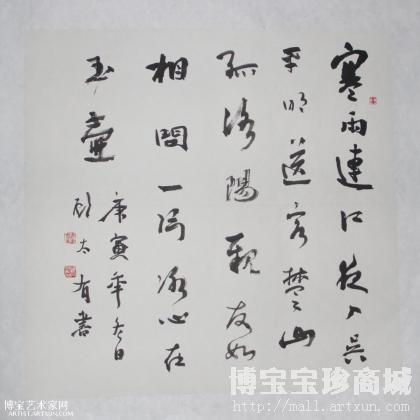 寒雨連江夜入吳
平明送客楚山
孤洛陽親友如
相問一片冰心在
玉壺
庚寅年冬日
太有書
博宝宝珍商城
http://mall.artxun.com
博宝艺术家网
ARTIST.ARTXUN.COM